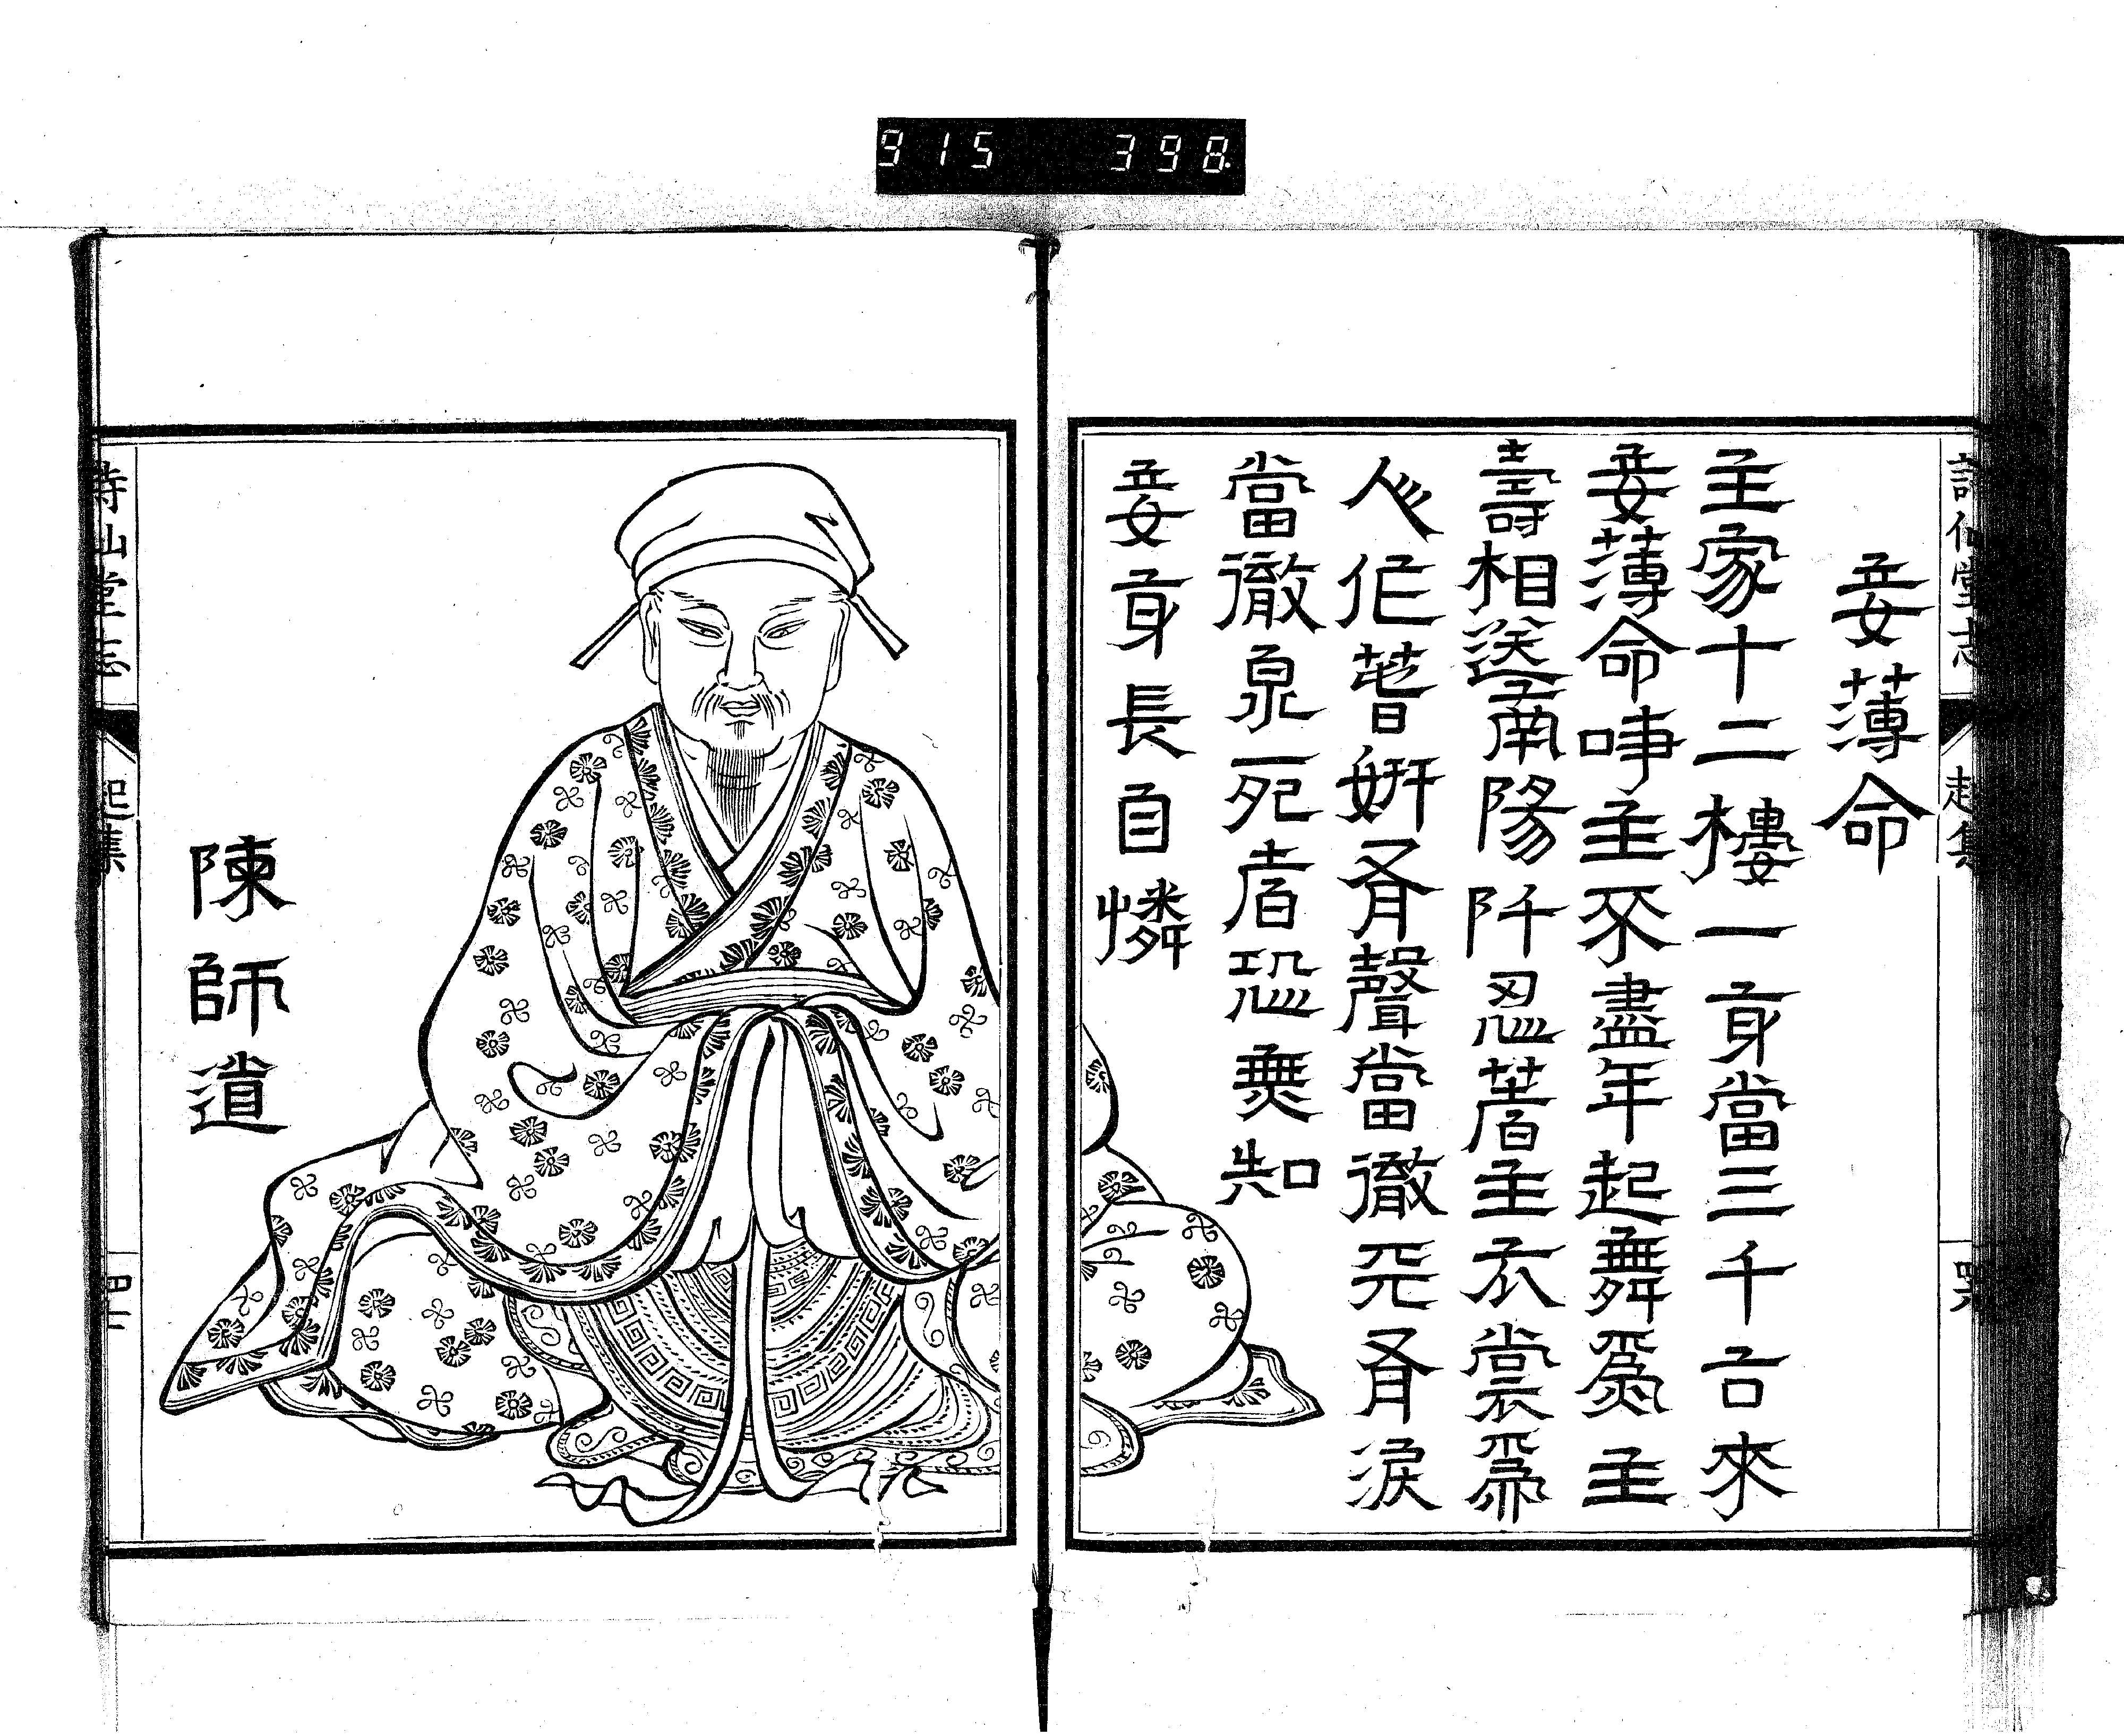 915 398
詩仙堂志
妾薄命
主家十二樓一身當三千古來
妾薄命事主不盡年起舞爲主
壽相送南陽阡忍著主衣裳爲
人作春姸有聲當徹天有淚
當徹泉死者恐無知
妾身長自憐
陳師道
詩仙堂志